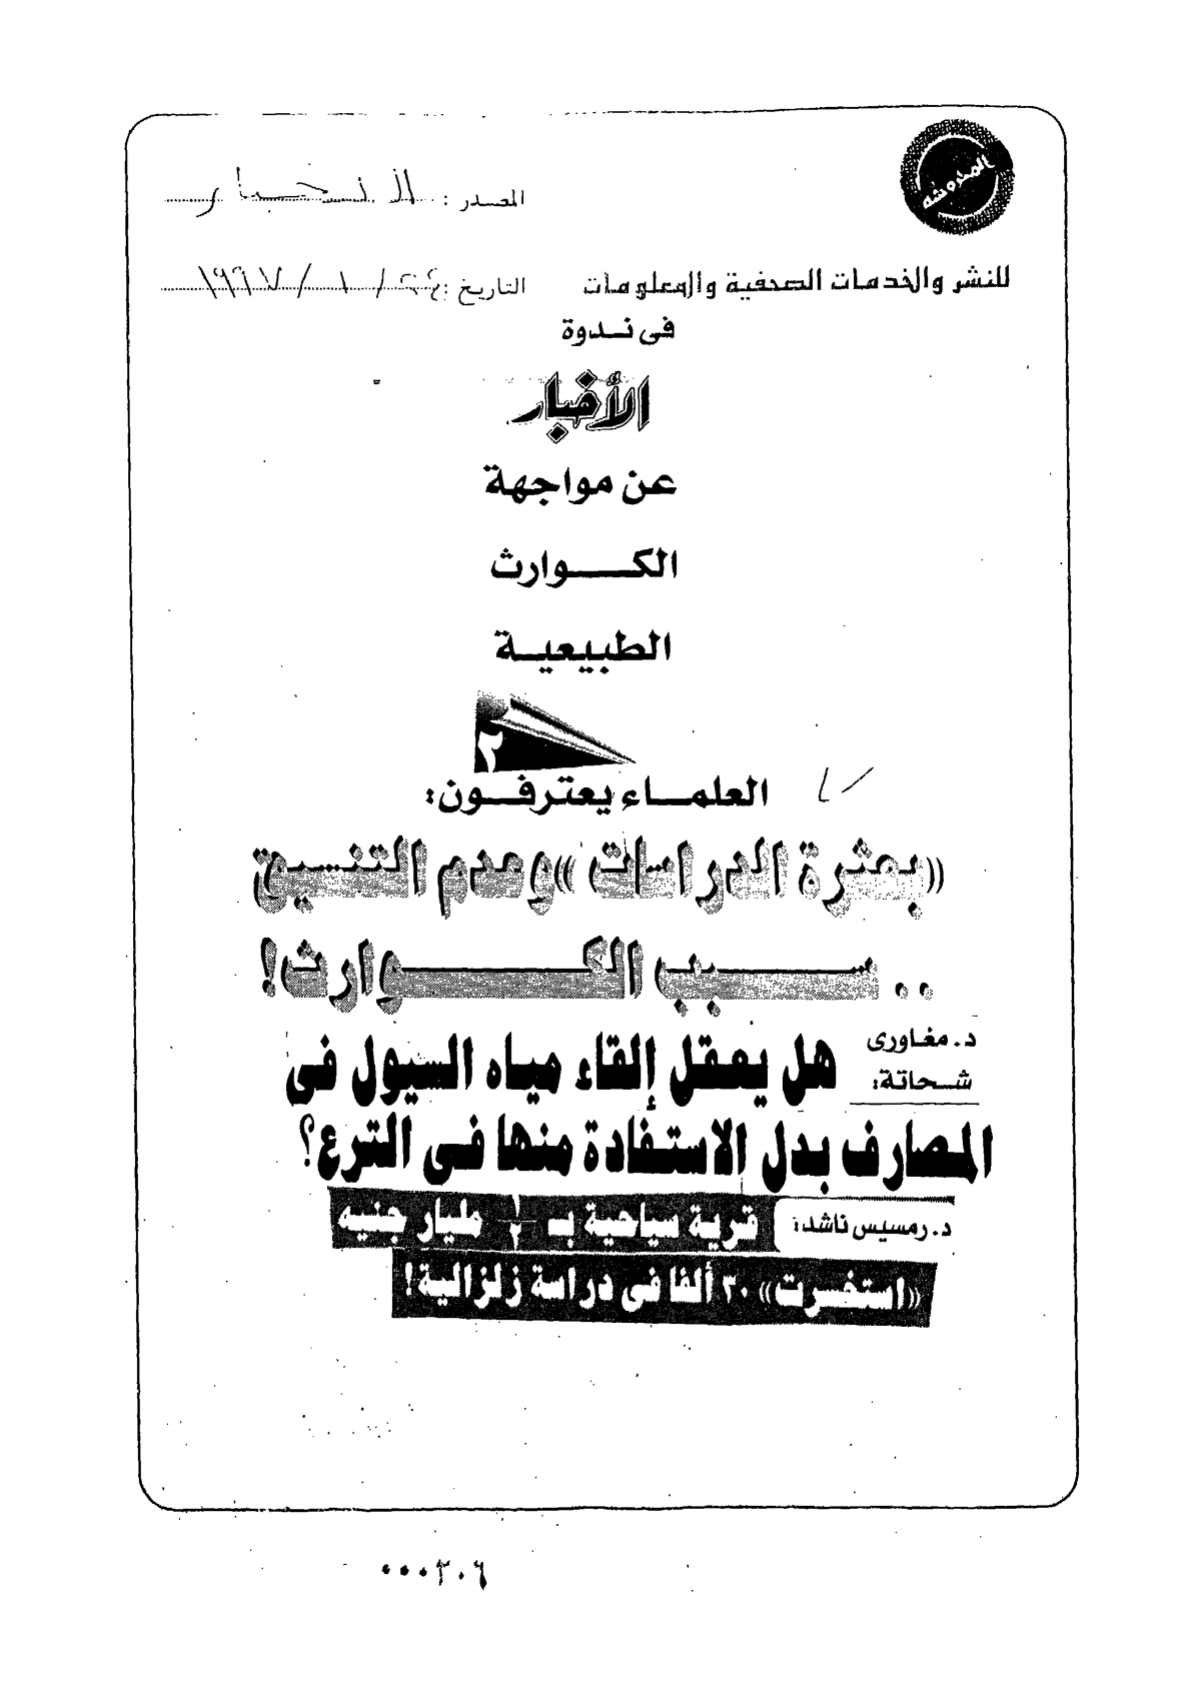 المحروسة
المصدر : الأخبار
للنشر والخدمات الصحفية والمعلومات
التاريخ : / ١ / ١٩٩٧
فى ندوة
الأخبار
عن مواجهة
الكوارث
الطبيعية
٢
العلماء يعترفون:
«بعثرة الدراسات» وعدم التنسيق
.. سبب الكوارث!
د. مغاورى شحاتة:
هل يعقل إلقاء مياه السيول فى
المصارف بدل الاستفادة منها فى الترع؟
د. رمسيس ناشد: قرية سياحية بـ مليار جنيه
«استخسرت» ٣٠ ألفا فى دراسة زلزالية!
٠٠٠٣٠٦